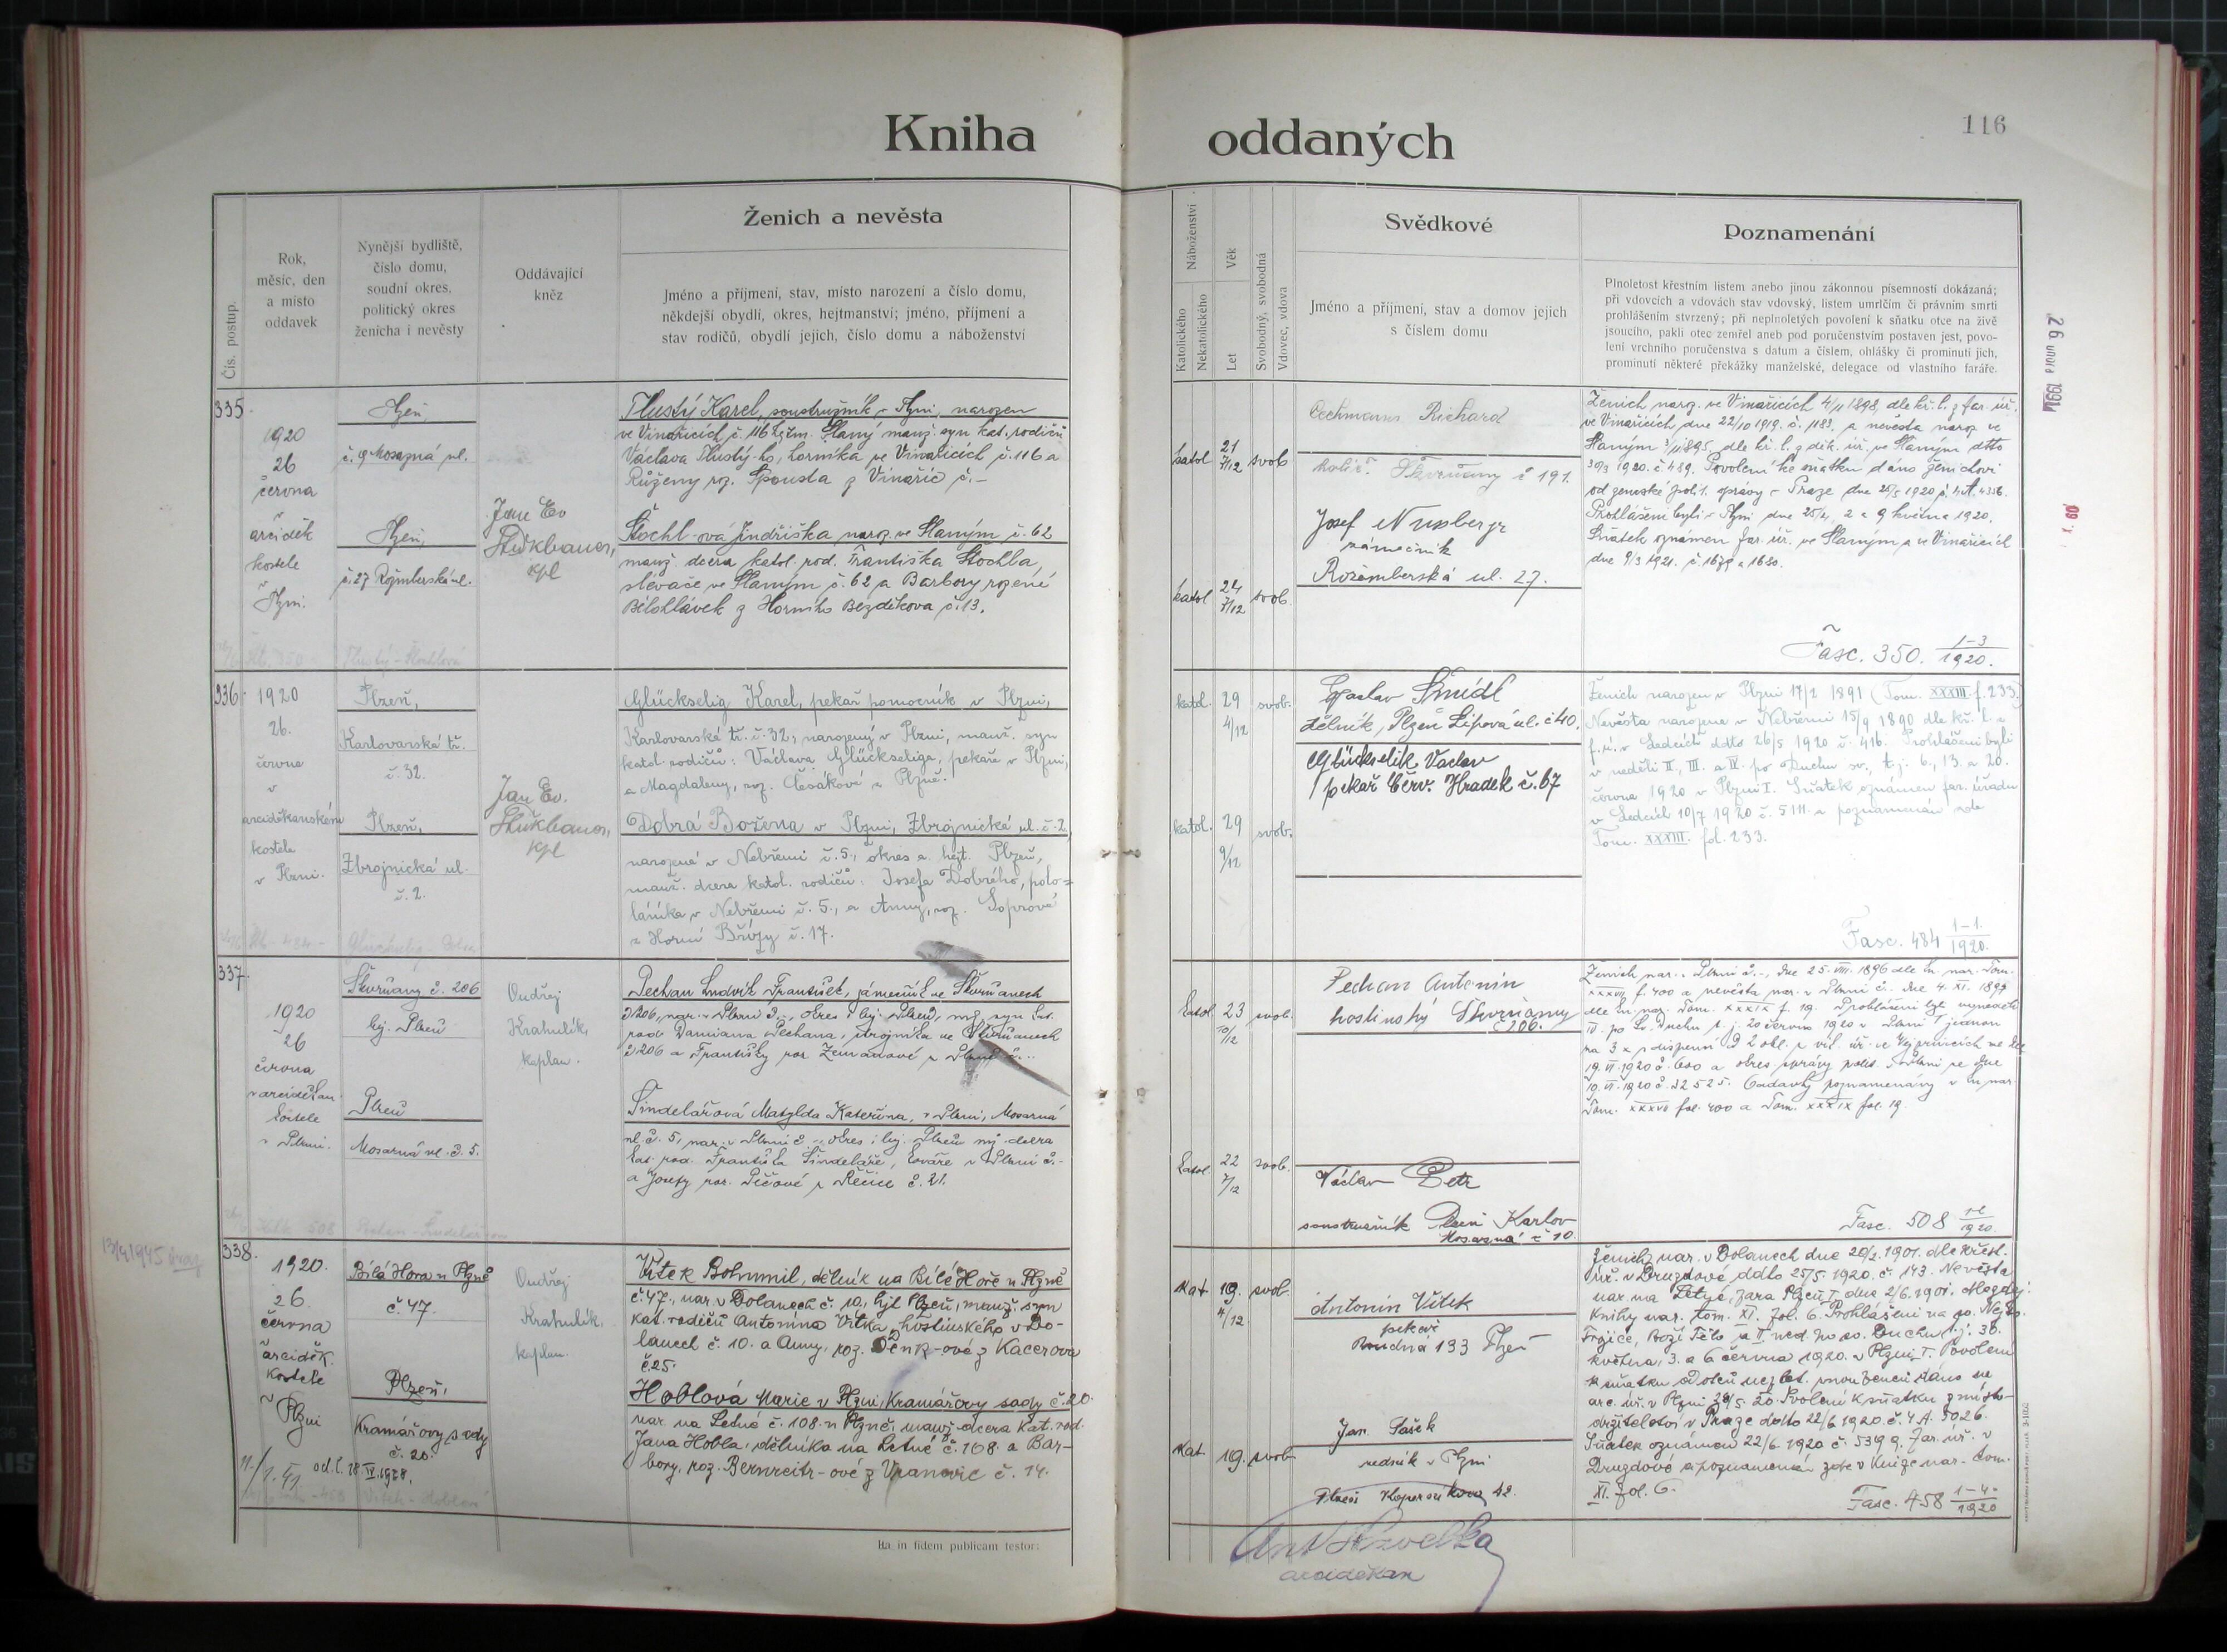 Kniha
oddaných
116
Čís. postup.
Rok,
měsíc, den
a místo
oddavek
Nynější bydliště,
číslo domu,
soudní okres,
politický okres
ženicha i nevěsty
Oddávající
kněz
Ženich a nevěsta
Jméno a příjmení, stav, místo narození a číslo domu,
někdejší obydlí, okres, hejtmanství; jméno, příjmení a
stav rodičů, obydlí jejich, číslo domu a náboženství
Náboženství
Katolického
Nekatolického
Věk
Let
Svobodný, svobodná
Vdovec, vdova
Svědkové
Jméno a příjmení, stav a domov jejich
s číslem domu
Poznamenání
Plnoletost křestním listem anebo jinou zákonnou písemností dokázaná;
při vdovcích a vdovách stav vdovský, listem umrlčím či právním smrti
prohlášením stvrzený; při neplnoletých povolení k sňatku otce na živě
jsoucího, pakli otec zemřel aneb pod poručenstvím postaven jest, povo-
lení vrchního poručenstva s datum a číslem, ohlášky či prominutí jich,
prominutí některé překážky manželské, delegace od vlastního faráře.
26 února 1991
335
1920
26
června
v
arciděk
kostele
v
Plzni.
Plzeň,
č. 9 Mosazná ul.
Plzeň,
č. 27 Rožmberská ul.
Jan Ev
kpl
Tlustý Karel, soustružník v Plzni, narozen
ve Vinařicích č. 116 hejtm. Slaný manž. syn kat. rodičů
Václava Tlustý-ho, horníka ve Vinařicích č. 116 a
Růženy roz. Spousta z Vinařic č.-
Štochl-ová Jindřiška naroz. ve Slaným č. 62
manž. dcera katol. rod. Františka Štochla,
slévače ve Slaným č. 62 a Barbory rozené
Bělohlávek z Horního Bezděkova č. 13.
katol 21 7/12 svob
katol 24 7/12 svob.
Cechmann Richard
kolář. Škvrňany č 191.
Josef Nussberger
zámečník
Rožemberská ul. 27.
Ženich naroz. ve Vinařicích 4/11 1898, dle kř. l. z far. úř.
ve Vinařicích dne 22/10 1919. č. 1183. a nevěsta naroz ve
Slaným 3/11 1895, dle kř. l. z děk. úř. ve Slaným dtto
30/3 1920. č 489. Povolení ke sňatku dáno ženichovi
od zemské polit. správy v Praze dne 25/5 1920 č. 4A. 4356.
Prohlášeni byli v Plzni dne 25/4, 2 a 9 května 1920.
Sňatek oznámen far. úř. ve Slaným a ve Vinařicích
dne 9/3 1921. č. 1679 a 1680.
Fasc. 350. 1-3/1920.
336
1920
26.
června
v
arciděkanském
kostele
v Plzni.
Plzeň,
Karlovarská tř.
č. 32.
Plzeň,
Zbrojnická ul.
č. 2.
Jan Ev.
kpl
Glückselig Karel, pekař pomocník v Plzni,
Karlovarská tř. č. 32; narozený v Plzni, manž. syn
katol. rodičů: Václava Glückseliga, pekaře v Plzni,
a Magdaleny, roz. Čisákové z Plzně.
Dobrá Božena v Plzni, Zbrojnická ul. č. 2
narozená v Nebřemi č. 5., okres a hejt. Plzeň,
manž. dcera katol. rodičů: Josefa Dobrého, polo-
láníka v Nebřemi č. 5., a Anny, roz. Soprové
z Horní Břízy č. 17.
katol. 29 4/12 svob.
katol. 29 9/12 svob.
Václav Šmídl
dělník, Plzeň Lipová ul. č 40.
Glückselik Vaclav
pekař Červ. Hradek č. 67
Ženich narozen v Plzni 17/2 1891 (Tom. XXXIII. f. 233.)
Nevěsta narozena v Nebřemi 15/9 1890 dle kř. l. z
f. ú. v Ledcích ddto 26/5 1920 č. 416. Prohlášeni byli
v neděli II, III. a IV. po Duchu sv., t. j. 6., 13. a 20.
června 1920 v Plzni I. Sňatek oznámen far. úřadu
v Ledcích 10/7 1920 č. 5111. a poznamenán zde
Tom. XXXIII. fol. 233.
Fasc. 484 1-1./1920.
337.
1920
26
června
v arciděkan
kostele
v Plzni.
Škvrňany č. 206
hej. Plzeň
Plzeň
Mosazná ul. č. 5.
Ondřej
Krahulík,
kaplan.
Pechan Ludvík František, zámečník ve Škvrňanech
č 206, nar. v Plzni č.-, okres i hej. Plzeň, mž. syn kat.
rod. Damiana Pechana, strojníka ve Škvrňanech
č 206 a Františky roz. Zemanové z Plzně č...
Šindelářová Matylda Kateřina, v Plzni, Mosazná
ul. č. 5, nar. v Plzni č -, okres i hej. Plzeň mž. dcera
kat. rod. Františka Šindeláře, kováře v Plzni č.-
a Josefy roz. Pičové z Řečice č. 21.
katol. 23 10/12 svob.
katol. 22 7/12 svob.
Pechan Antonín
hostinský Škvrňany
č 206.
Václav Petr
soustružník Plzeň Karlov
Mosazná č 10.
Ženich nar. v Plzni č.-, dne 25. VIII. 1896 dle kn. nar. Tom.
XXXVI, f. 400 a nevěsta nar. v Plzni č. dne 4. XI. 1897
dle kn. nar. Tom. XXXIX f. 19.
IV. po sv. Duchu t. j. 20 června 1920 v Plzni I jednou
19. VI. 1920 č. 600 a okres. správy polit. v Plzni ze dne
Tom. XXXVI fol. 400 a Tom. XXXIX fol. 19.
Fasc. 508 1-2/1920.
338.
1920.
26.
června
v
arciděk.
kostele
v
Plzni
Bílá Hora u Plzně
č. 47.
Plzeň,
Kramářovy sady
č. 20.
Ondřej
Krahulík,
kaplan.
Vítek Bohumil, dělník na Bílé Hoře u Plzně
č. 47., nar. v Dolanech č. 10., hjt Plzeň, manž. syn
kat. rodičů Antonína Vítka, hostinského v Do-
lanech č. 10. a Anny, roz. Denk-ové z Kacerova
č. 25.
Hoblová Marie v Plzni, Kramářovy sady č. 20.
nar. na Letné č. 108. u Plzně, manž. dcera kat. rod.
Jana Hobla, dělníka na Letné č. 108. a Bar-
bory, roz. Bernreitr-ové z Vranovic č. 14.
Kat 19. 4/12 svob.
Kat 19. svob
Antonín Vítek
pekař
133 Plzeň
Jan Pašek
ředník v Plzni
Plzeň Koperníkova 42.
Ženich nar. v Dolanech dne 20/2. 1901. dle křest.
úř. v Druzdové ddto 25/5. 1920. č. 143. Nevěsta
nar. na Letné, fara Plzeň I. dne 2/6. 1901.
Knihy nar. tom. XI. fol. 6. Prohlášeni na sv. Nejsv.
Trojice, Boží Tělo a II. ned. po sv. Duchu t. j. 30.
května, 3. a 6 června 1920. v Plzni I. Povolení
arc. úř. v Plzni 28/5. 20. Svolení k sňatku z místo-
držitelství v Praze ddto 22/6 1920. č. 4 A. 5026.
Sňatek oznámen 22/6 1920 č. 5399. Far. úř. v
Druzdové a poznamenán zde v knize nar. tom.
XI. fol. 6.
Fasc. 458 1-4./1920
Ita in fidem publicam testor:
arciděkan